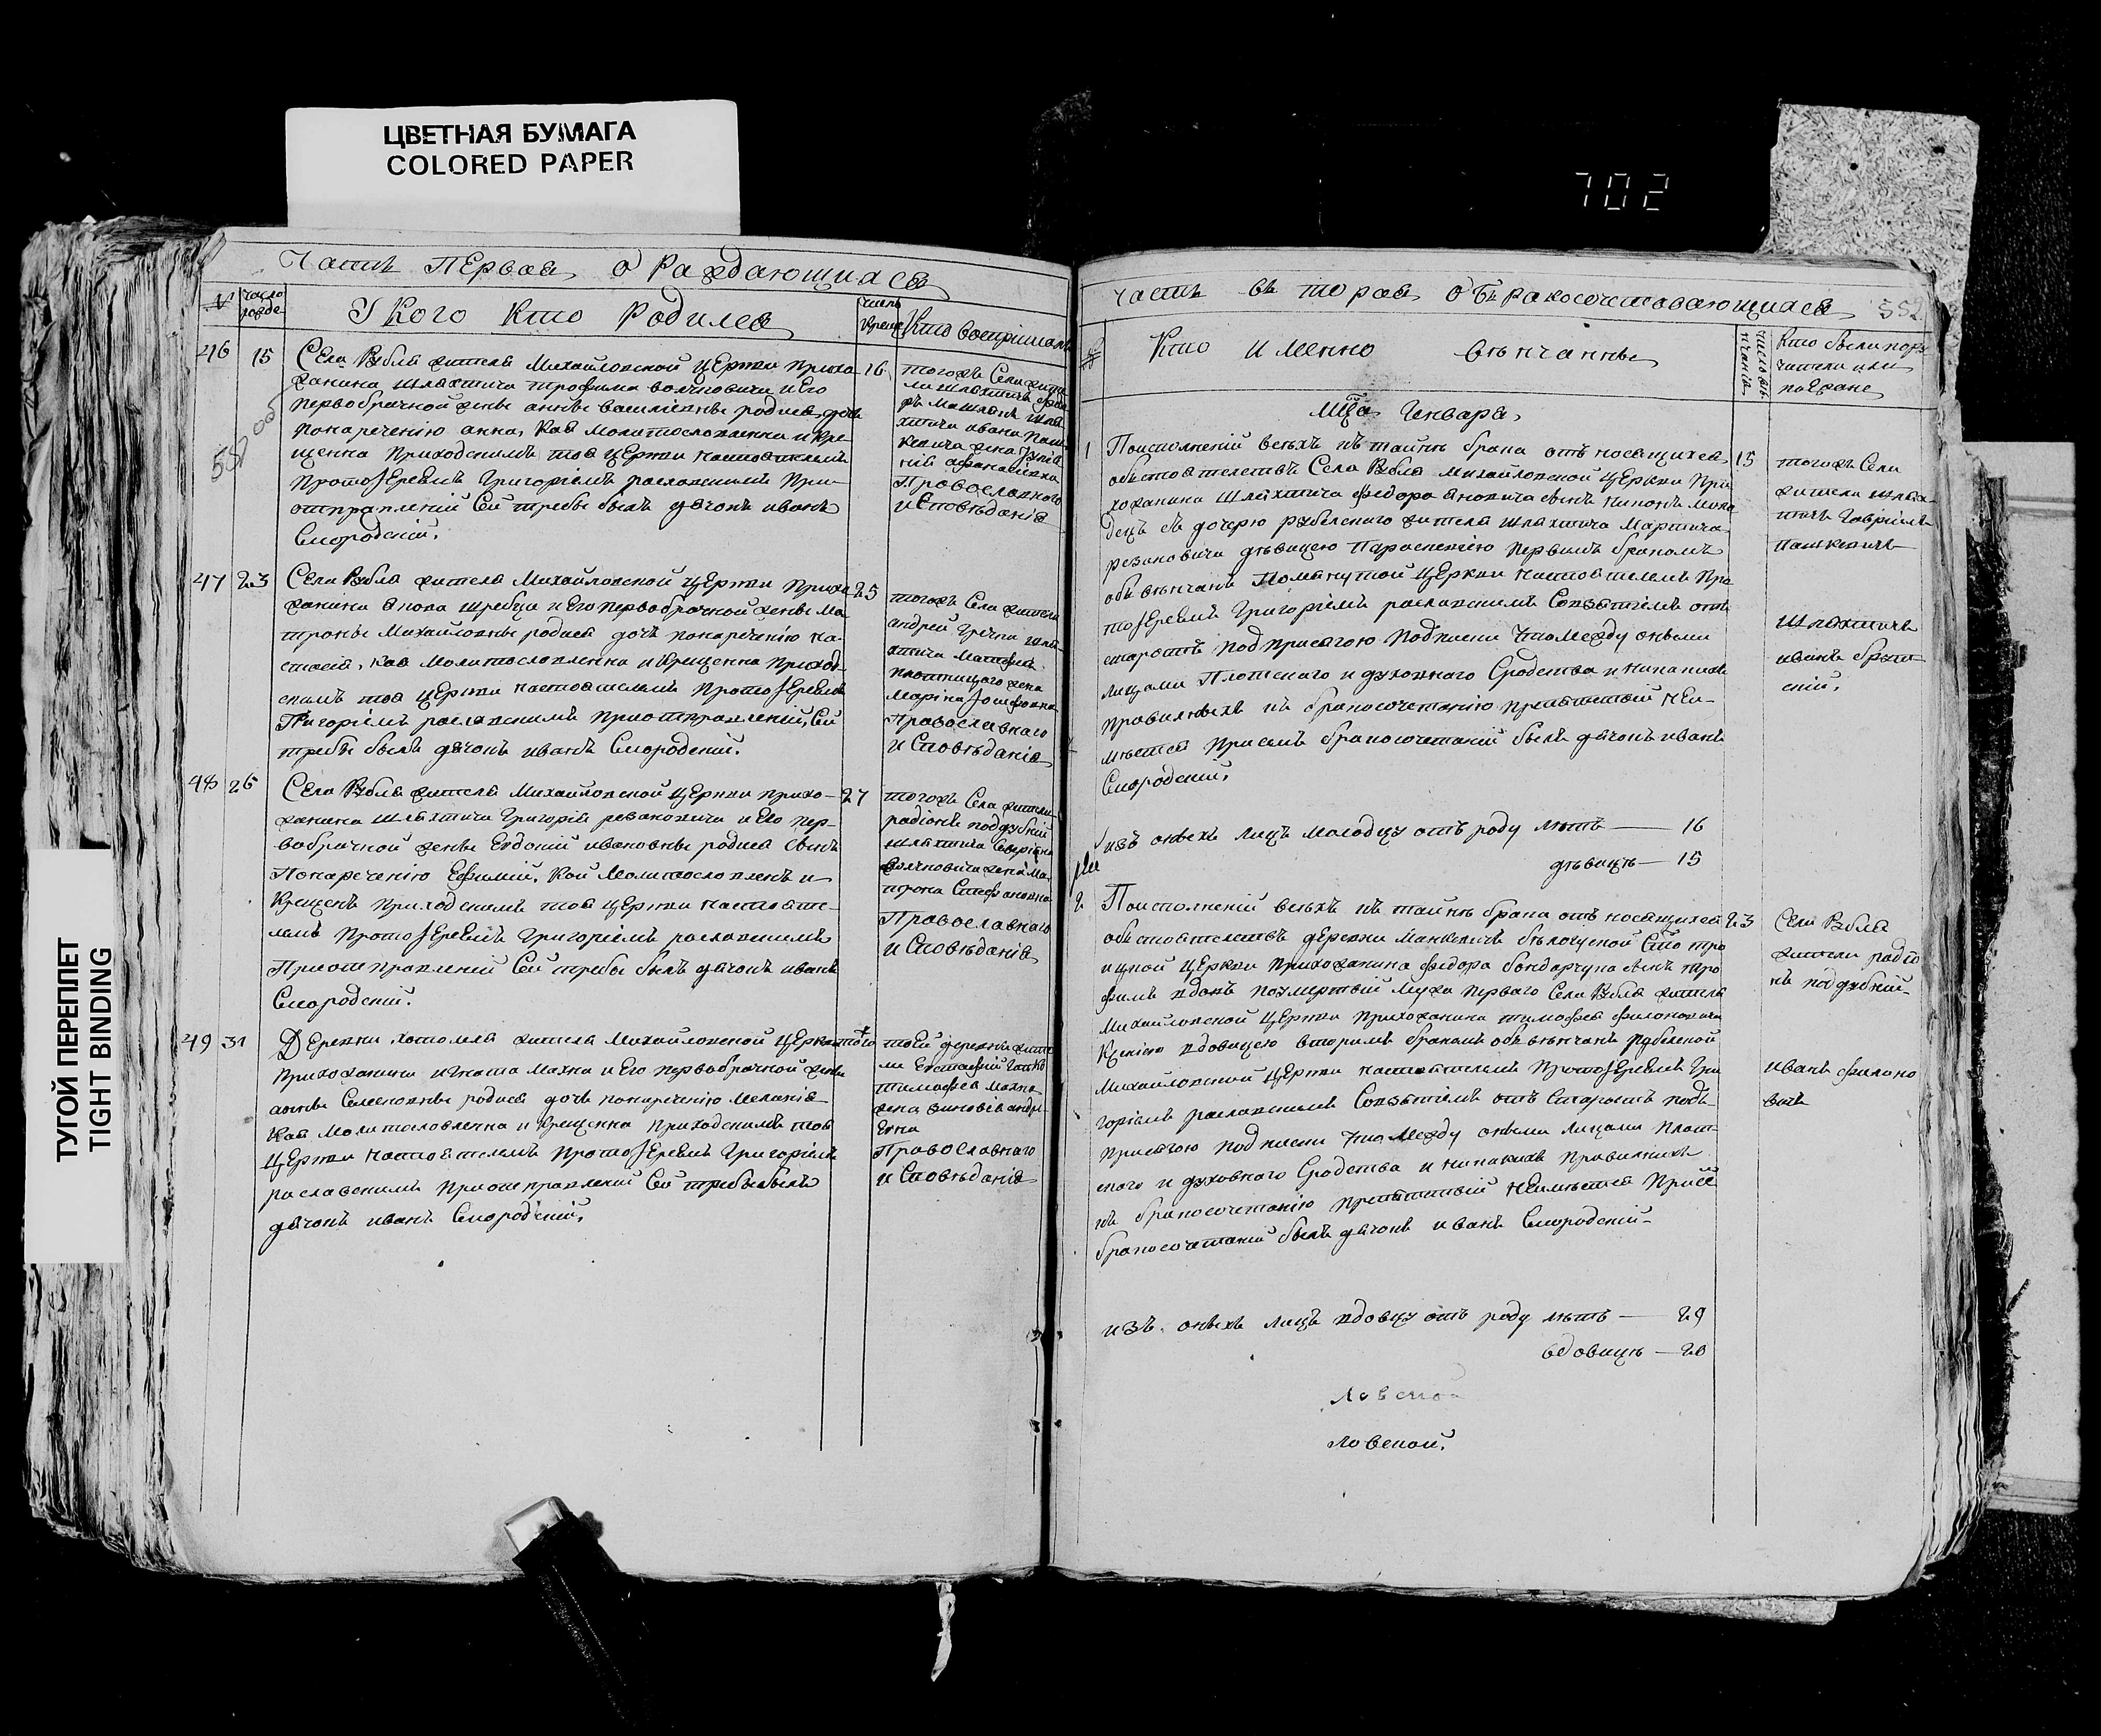 ЦВЕТНАЯ БУМАГА
COLORED PAPER
702
ТУГОЙ ПЕРЕПЛЕТ
TIGHT BINDING
Часть Первая о Раждающихся
№
число рожде
У Кого Кто Родился
число креще
Кто восприимал
46 15 16
Села Рубля жителя Михайловской Церкви прихо
жанина шляхтича трофима волчковича и Его
первобрачной жены анны василіевны родися дочь
понареченію анна, Коя Молитвословленна и кре-
щенна Приходскимъ тоя Церкви настоятелемъ
протоІереемъ Григоріемъ раславскимъ При
отправленіи Сей требы былъ дячокъ иванъ
Смородскій.
тогожъ Села жите
ли шляхтичъ
шля
хтича ивана Паш
кевича жена
Православного
исповѣданія
47 23 25
Села Рубля жителя Михайловской Церкви прихо
жанина якова жребца и Его первобрачной жены ма
троны Михайловны родися дочь понареченію на-
стасія, коя Молитвословленна и Крещенна Приход
скимъ тоя Церкви настоятелемъ ПротоІереемъ
Григоріемъ раславскимъ приотправленіи, Сей
требы былъ дячокъ иванъ Смородскій.
тогожъ Села жители
андрей Гречка шля
хтича Матфея
плотницкого жена
Марина Іосифовна
Православнаго
исповѣданія
48 26 27
Села Рубля жителя Михайловской Церкви прихо-
жанина шляхтича Григорія резановича и Его пер-
вобрачной жены Евдокіи ивановны родися сынъ
Понареченію Ефимій, кой Молитвословленъ и
Крещенъ приходскимъ тоя Церкви настояте-
лемъ ПротоІереемъ Григоріемъ раславскимъ
Приотправленіи Сей требы былъ дячокъ иванъ
Смородскій.
тогожъ Села жители
радіонъ поддубній
шляхтича
волчковича жена ма
трона Стефановна
Православнаго
исповѣданія
49 31 того
Деревни хотомля жителя Михайловской Церкви
прихожанина игната махна и Его первобрачной жены
анны Семеновны родися дочь понареченію Меланія
Коя Молитвословленна и Крещенна приходскимъ тоя
Церкви настоятелемъ ПротоІереемъ Григоріемъ
раславскимъ приотправленіи Сей требы былъ
дячокъ иванъ Смородскій.
тоей деревни жите
ли Евстафій
тимофея махна
жена зиновія андре
Евна
Православнаго
исповѣданія
часть вторая о бракосочетовающихся 552
Кто именно вѣнчанны
число вѣ
нчанія
Кто были пору
чители или
поѣзжане
Мца Генваря
1 15
Поисполненіи всѣхъ къ тайнѣ брака относящихся
обстоятелствъ Села Рубля михайловской Церкви при
хожанина Шляхтича федора яновича сынъ никонъ моло
децъ съ дочерю рубелского жителя шляхтича Мартина
резановича дѣвицею Параскевіею первымъ бракомъ
обвѣнчанъ Помянутой Церкви настоятелемъ про
тоІереемъ Григоріемъ раславскимъ Совзятіемъ отъ
старостъ подприсягою подписки чтоМежду оными
лицами Плотского и духовного Сродства и никакихъ
правилныхъ къ бракосочетанію препятствій неи-
мѣется присемъ бракосочетаніи былъ дячокъ иванъ
Смородскій.
изъ оныхъ лицъ молодцу отъ роду лѣтъ — 16
дѣвицѣ — 15
тогожъ Села
жители шлях-
тичъ Гавріилъ
пашкевичъ
Шляхтичъ
иванъ
скій.
2 23
Поисполненіи всѣхъ къ тайнѣ брака относящихся
обстоятелствъ деревни Манкевичъ бѣлоуской Сто тро
ицкой Церкви прихожанина федора бондарчука сынъ тро
фимъ вдовъ поумертвій
Мужа первого Села Рубля жителя
Михайловской Церкви прихожанина тимофея филоновича
вдовицею вторымъ бракомъ обвѣнчанъ рубелской
Михайловской Церкви настоятелемъ ПротоІереемъ Гри
горіемъ раславскимъ Совзятіемъ отъ Старостъ подъ
присягою подписки что Между оными лицами плот
ского и духовного Сродства и никакихъ правилныхъ
къ бракосочетанію препятствій неимѣется присе
бракосочетаніи былъ дячокъ иванъ Смородскій.
изъ оныхъ лицъ вдовцу отъ роду лѣтъ — 29
вдовицѣ — 20
Села Рубля
жители радіо
нъ поддубній
иванъ филоно
вичъ
ловской
ловской.